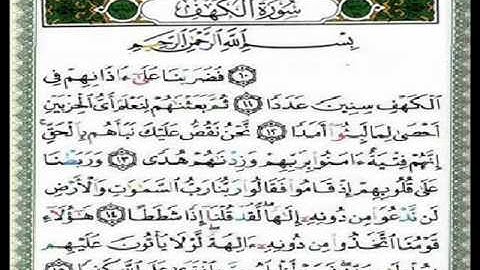 سُورَةُ الكَهْفِ
بِسْمِ اللَّهِ الرَّحْمَٰنِ الرَّحِيمِ
﴿١٠﴾ فَضَرَبْنَا عَلَىٰ ءَاذَانِهِمْ فِي
الْكَهْفِ سِنِينَ عَدَدًا ﴿١١﴾ ثُمَّ بَعَثْنَاهُمْ لِنَعْلَمَ أَيُّ الْحِزْبَيْنِ
أَحْصَىٰ لِمَا لَبِثُوا أَمَدًا ﴿١٢﴾ نَحْنُ نَقُصُّ عَلَيْكَ نَبَأَهُم بِالْحَقِّ
إِنَّهُمْ فِتْيَةٌ ءَامَنُوا بِرَبِّهِمْ وَزِدْنَاهُمْ هُدًى ﴿١٣﴾ وَرَبَطْنَا
عَلَىٰ قُلُوبِهِمْ إِذْ قَامُوا فَقَالُوا رَبُّنَا رَبُّ السَّمَاوَاتِ وَالْأَرْضِ
لَن نَّدْعُوَا مِن دُونِهِ إِلَٰهًا لَّقَدْ قُلْنَا إِذًا شَطَطًا ﴿١٤﴾ هَٰؤُلَاءِ
قَوْمُنَا اتَّخَذُوا مِن دُونِهِ ءَالِهَةً لَّوْلَا يَأْتُونَ عَلَيْهِم